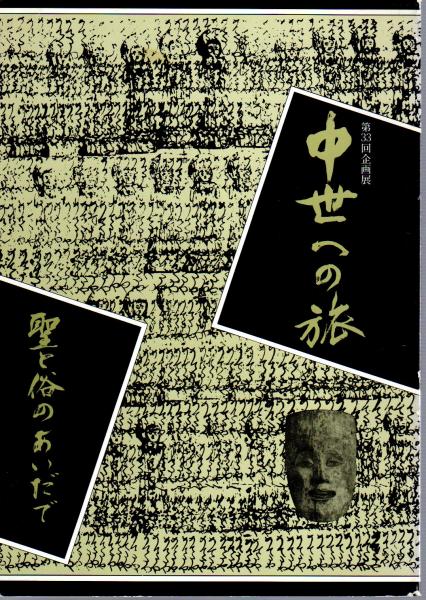 第33回企画展
中世への旅
聖と俗のあいだで